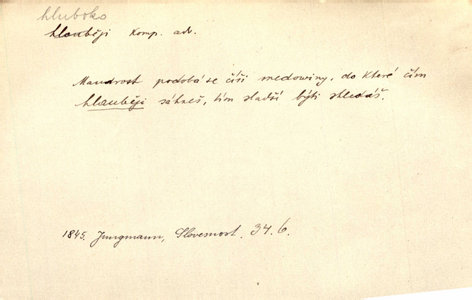 hluboko
hlouběji komp. adv.
Maudrost podobá se číši medowiny, do které čím
hlauběji sáhneš, tím sladší býti shledáš.
1845. Jungmann, Slovesnost. 34. 6.